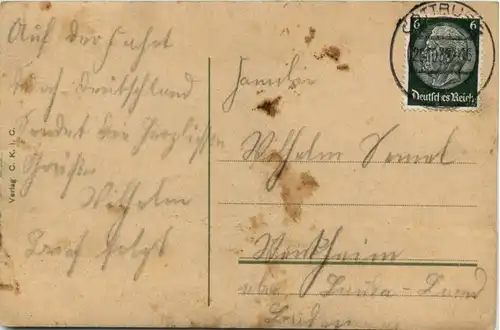 Auf der Fahrt
durch Deutschland
sendet die herzlichsten
Grüße
Wilhelm
Brief folgt
Verlag C. K. i. C.
Familie
Wilhelm
Werkheim
über Lauda - Land
Baden
6 6
Deutsches Reich